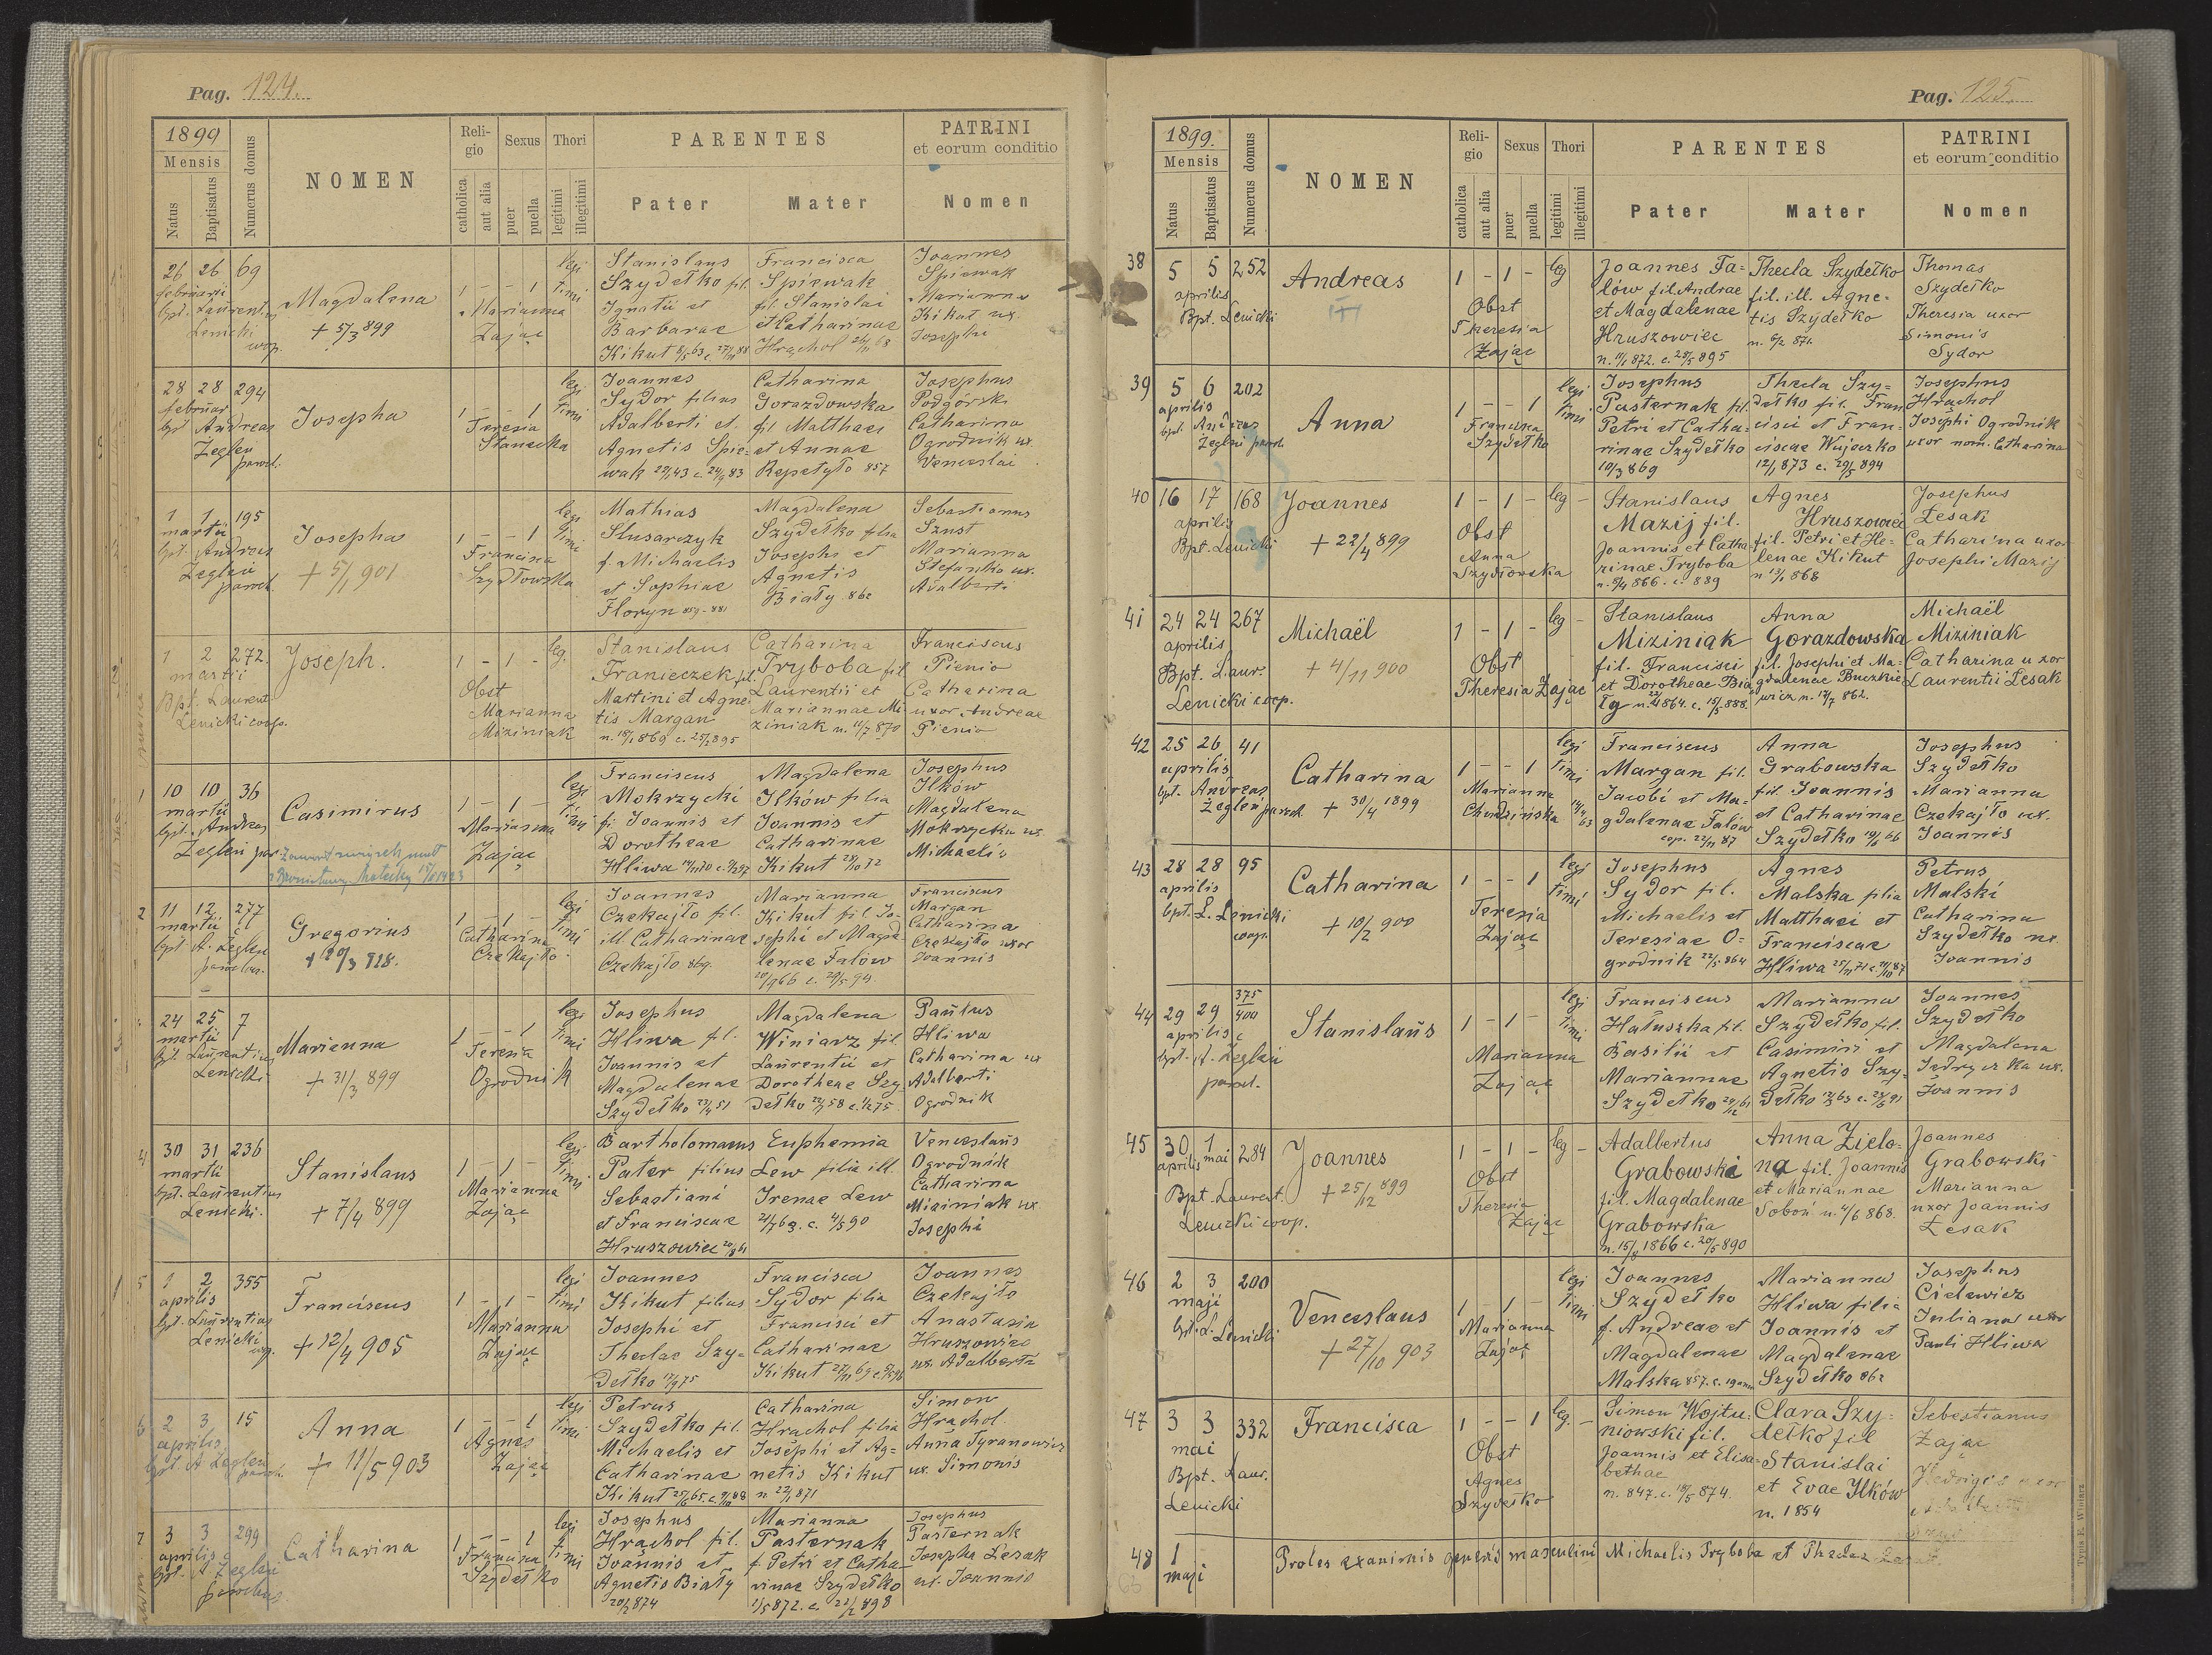 Pag. 124.
1899
Mensis
Natus
Baptisatus
Numerus domus
NOMEN
Religio
catholica
aut alia
Sexus
puer
puella
Thori
legitimi
illegitimi
PARENTES
Pater
Mater
PATRINI
et eorum conditio
Nomen
26 26 69
februarii
Lenicki
Magdalena
+ 5/3 899
1 - - 1
Marianna
Zając
legi
timi
Stanislaus
Szydełko fil.
Ignatii et
Barbarae
Kikut
Francisca
Spiewak
fil. Stanislai
et Catharinae
Hrachol
Joannes
Spiewak
Marianna
Kikut ux.
Josephi
28 28 294
februar
bpt Andreas
Zegleń
paroch.
Josepha
1 - - 1
Teresia
Stanecka
legi
timi
Joannes
Sydor filius
Adalberti et
Agnetis Spie-
wak
Catharina
Gorazdowska
fil Matthaei
et Annae
Repetyło 857
Josephus
Podgórski
Catharina
Ogrodnik ux.
Venceslai
1 1 195
martii
bpt. Andreas
Zegleń
paroch.
Josepha
+ 5/1 901
1 - - 1
Francisca
Szydłowska
legi
timi
Mathias
Slusarczyk
f. Michaelis
et Sophiae
Floryn
Magdalena
Szydełko filia
Josephi et
Agnetis
Biały 862
Sebastianus
Szust
Marianna
Stefanko ux.
Adalberti
1 2 272.
martii
Bpt. Laurent
Lenicki coop.
Joseph.
1 - 1 -
Obst
Marianna
Miziniak
leg.
Stanislaus
Franieczek fil.
Martini et Agne
tis Margan
Catharina
Tryboba fil
Laurentii et
Mariannae Mi-
ziniak n. 11/7 870
Franciscus
Pienio
Catharina
uxor Andreae
Pienio
10 10 36
martii
bpt. Andreas
Zegleń par
Casimirus
1 - 1 -
Marianna
Zając
legi
timi
Franciscus
Mokrzycki
fi Joannis et
Dorotheae
Hliwa
Magdalena
Ilków filia
Joannis et
Catharinae
Kikut
Josephus
Ilków
Magdalena
Mokrzycka ux.
Michaelis
2 11 12 277
martii
bpt A. Zegleń
Gregorius
1 - 1 -
Catharina
Czekajło
legi
timi
Joannes
Czekajło fil.
ill Catharinae
Czekajło 869.
Marianna
Kikut fil Jo-
sephi et Magd-
lenae Fałów
Franciscus
Margan
Catharina
Czekajło uxor
Joannis
24 25 7
martii
bpt Laurentius
Lenicki
Marianna
+ 31/3 899
1 - - 1
Teresia
Ogrodnik
legi
timi
Josephus
Hliwa fil.
Joannis et
Magdalenae
Szydełko
Magdalena
Winiarz fil
Laurentii et
Dorotheae Szy-
dełko
Paulus
Hliwa
Catharina ux
Adalberti
Ogrodnik
4 30 31 236
martii
bpt. Laurentius
Lenicki.
Stanislaus
+ 7/4 899
1 - 1 -
Marianna
Zając
legi
timi
Bartholomaeus
Pater filius
Sebastiani
et Franciscae
Hruszowiec
Euphemia
Lew filia ill.
Irenae Lew
Venceslaus
Ogrodnik
Catharina
Miziniak ux
Josephi
5 1 2 355
aprilis
bpt. Laurentius
Lenicki
Franciscus
+ 12/4 905
1 - 1 -
Marianna
Zając
legi
timi
Joannes
Kikut filius
Josephi et
Theclae Szy-
dełko
Francisca
Sydor filia
Francisci et
Catharinae
Kikut
Joannes
Czekajło
Anastasia
Hruszowiec
ux. Adalberti
6 2 3 15
aprilis
bpt. A Zegleń
Anna
+ 11/5 903
1 - - 1
Agnes
Zając
legi
timi
Petrus
Szydełko fil.
Michaelis et
Catharinae
Kikut
Catharina
Hrachol filia
Josephi et Ag-
netis Kikut
n. 22/1 871
Simon
Hrachol
Anna Tyranowicz
ux. Simonis
7 3 3 299
aprilis
bpt. A Zegleń
parochus
Catharina
1 - - 1
Francisca
Szydełko
legi
timi
Josephus
Hrachol fil.
Joannis et
Agnetis Biały
20/2 874
Marianna
Pasternak
f Petri et Catha-
rinae Szydełko
Josephus
Pasternak
Josepha Lesak
ux. Joannis
Pag. 125.
1899.
Mensis
Natus
Baptisatus
Numerus domus
NOMEN
Religio
catholica
aut alia
Sexus
puer
puella
Thori
legitimi
illegitimi
PARENTES
Pater
Mater
PATRINI
et eorum conditio
Nomen
38 5 5 252
aprilis
Bpt. Lenicki
Andreas
1 - 1 -
Obst
Theresia
Zając
leg
Joannes Fa-
łów fil. Andrae
et Magdalenae
Hruszowiec
n. 11/1 872. c. 28/5 895
Thecla Szydełko
fil. ill. Agne-
tis Szydełko
n. 6/2 871.
Thomas
Szydełko
Theresia uxor
Simonis
Sydor
39 5 6 202
aprilis
bpt. Andreas
Zegleń paroch
Anna
1 - - 1
Francisca
Szydełko
legi
timi
Josephus
Pasternak fil.
Petri et Catha-
rinae Szydełko
10/3 869
Thecla Szy-
dełko fil. Fran
cisci et Fran-
ciscae Wujeczko
12/1 873 c. 29/5 894
Josephus
Hrachol
Josephi Ogrodnik
uxor nom. Catharina
40 16 17 168
aprilis
Bpt. Lenicki
Joannes
+ 22/4 899
1 - 1 -
Obst
Anna
Szydłowska
leg -
Stanislaus
Mazij fil.
Joannis et Catha
rinae Tryboba
n. 5/4 866. c. 889
Agnes
Hruszowiec
fil. Petri et He-
lenae Kikut
Josephus
Lesak
Catharina uxor
Josephi Mazij
41 24 24 267
aprilis
Bpt. Laur.
Lenicki coop.
Michaël
+ 4/11 900
1 - 1 -
Obst
Theresia Zając
leg -
Stanislaus
Miziniak
fil. Francisci
et Dorotheae Bia
ły
Anna
Gorazdowska
fil. Josephi et Ma-
gdalenae Buczkie
wicz n. 17/7 862.
Michaël
Miziniak
Catharina uxor
Laurentii Lesak
42 25 26 41
aprilis
bpt. Andreas
Zegleń paroch
Catharina
+ 30/4 1899
1 - - 1
Marianna
Chudzińska
legi
timi
Franciscus
Margan fil.
Jacobi et Ma-
gdalenae Fałów
cop. 22/11 87
Anna
Grabowska
fil Joannis
et Catharinae
Szydełko
Josephus
Szydełko
Marianna
Czekajło ux.
Joannis
43 28 28 95
aprilis
bpt. L. Lenicki
coop.
Catharina
+ 10/2 900
1 - - 1
Teresia
Zając
legi
timi
Josephus
Sydor fil.
Michaelis et
Teresiae O-
grodnik 22/5 864
Agnes
Malska filia
Matthaei et
Franciscae
Hliwa
Petrus
Malski
Catharina
Szydełko ux.
Joannis
44 29 29 375/400
aprilis
bpt. A. Zegleń
paroch.
Stanislaus
1 - 1 -
Marianna
Zając
legi
timi
Franciscus
Hałuszka fil.
Basilii et
Mariannae
Szydełko
Marianna
Szydełko fil.
Casimiri et
Agnetis Szy-
dełko
Joannes
Szydełko
Magdalena
Jedryczka ux.
Joannis
45 30 1 284
aprilis mai
Bpt. Laurent.
Lenicki coop.
Joannes
+ 25/12 899
1 - 1 -
Obst
Theresia
Zając
leg -
Adalbertus
Grabowski
fil. Magdalenae
Grabowska
Anna Zielo-
na fil. Joannis
et Mariannae
Soboń n. 4/6 868.
Joannes
Grabowski
Marianna
uxor Joannis
Lesak
46 2 3 200
maji
bpt. L. Lenicki
Venceslaus
+ 27/10 903
1 - 1 -
Marianna
Zając
legi
timi
Joannes
Szydełko
f. Andreae et
Magdalenae
Malska
Marianna
Hliwa filia
Joannis et
Magdalenae
Szydełko 862
Josephus
Cielewicz
Juliana uxor
Pauli Hliwa
47 3 3 332
mai
Bpt. Laur.
Lenicki
Francisca
1 - - 1
Obst
Agnes
Szydełko
leg. -
Simon Wojtu-
niowski fil.
Joannis et Elisa-
bethae
n. 847. c. 18/5 874.
Clara Szy-
dełko fil
Stanislai
et Evae Ilków
n. 1854
Sebastianus
Zając
Hedvigis uxor
48 1
maji
Proles exanimis generis masculini Michaelis Tryboba et Theclae
Typis E. Winiarz